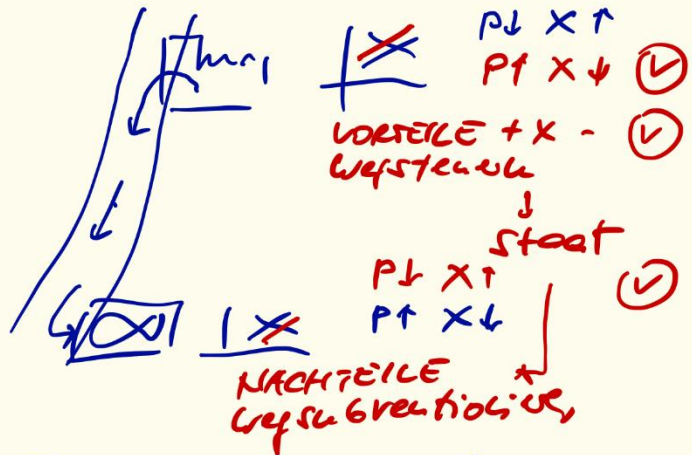 P↓ X↑
P↑ X↓ ✓
VORTEILE + X - ✓
wegsteuern
↓
Staat
P↓ X↑ ✓
P↑ X↓
NACHTEILE
wegsubventionieren